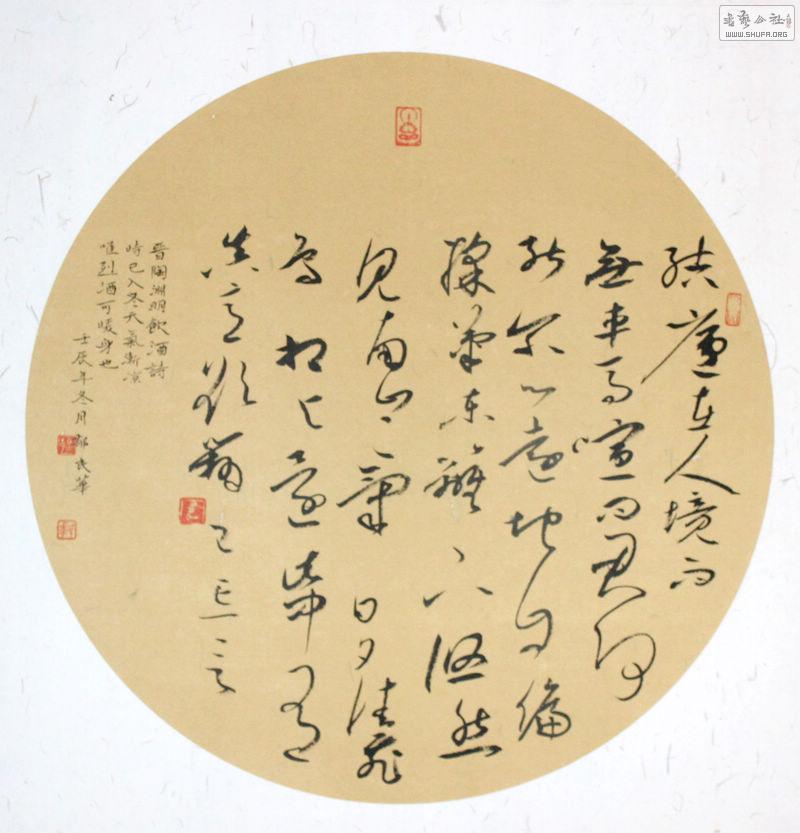 結廬在人境而
無車馬喧問君何
能尔心遠地自偏
採菊東籬下悠然
見南山々氣日夕佳飛
鳥相与還此中有
真意欲辯已忘言
晉陶淵明飲酒詩
時已入冬天氣漸凉
唯烈酒可暖身也
壬辰年冬月
書藝公社
WWW.SHUFA.ORG